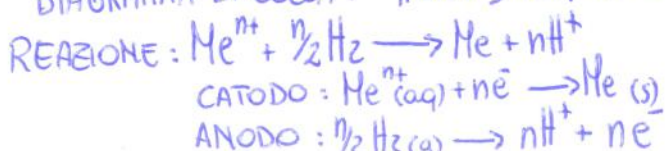 REAZIONE : Meⁿ⁺ + n/2 H₂ → Me + nH⁺
CATODO : Meⁿ⁺(aq) + ne⁻ → Me (s)
ANODO : n/2 H₂(g) → nH⁺ + ne⁻